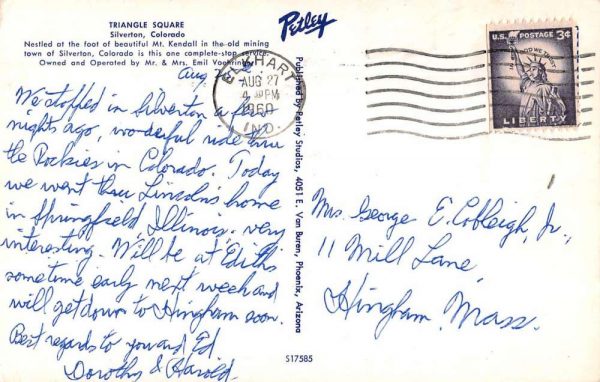 TRIANGLE SQUARE
Silverton, Colorado
Nestled at the foot of beautiful Mt. Kendall in the old mining
town of Silverton, Colorado is this one complete-stop service.
Owned and Operated by Mr. & Mrs. Emil
Aug
We stopped in Silverton a few
nights ago, wonderful ride thru
the Rockies in Colorado. Today
we went thru Lincoln's home
in Springfield, Illinois. very
interesting. Will be at Edith's
sometime early next week and
will get down to Hingham soon.
Best regards to you and Ed
Dorothy & Harold.
Petley
Published by Petley Studios, 4051 E. Van Buren, Phoenix, Arizona
S17585
ELKHART
AUG 27
PM
1960
IND.
U.S. POSTAGE 3¢
IN GOD WE TRUST
LIBERTY
Mrs. George E. Cobleigh, Jr.,
11 Mill Lane,
Hingham, Mass.